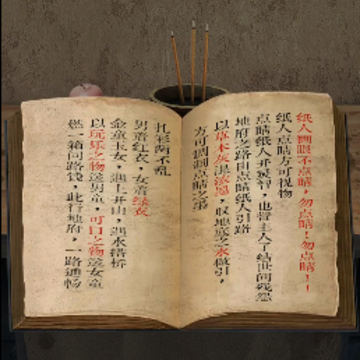 纸人画眼不点睛，勿点睛！勿点睛！！
纸人点睛方可视物
点睛纸人开复智，也替主人了结世间残怨
地府之路由点睛纸人引路
以草木灰混淡墨，取地底之水做引，
方可调制点睛之墨
扎彩两不乱
男着红衣，女着绿衣
金童玉女，遇上开山，遇水搭桥
以玩乐之物送男童，可口之物送女童
燃一箱问路钱，此行地府，一路通畅